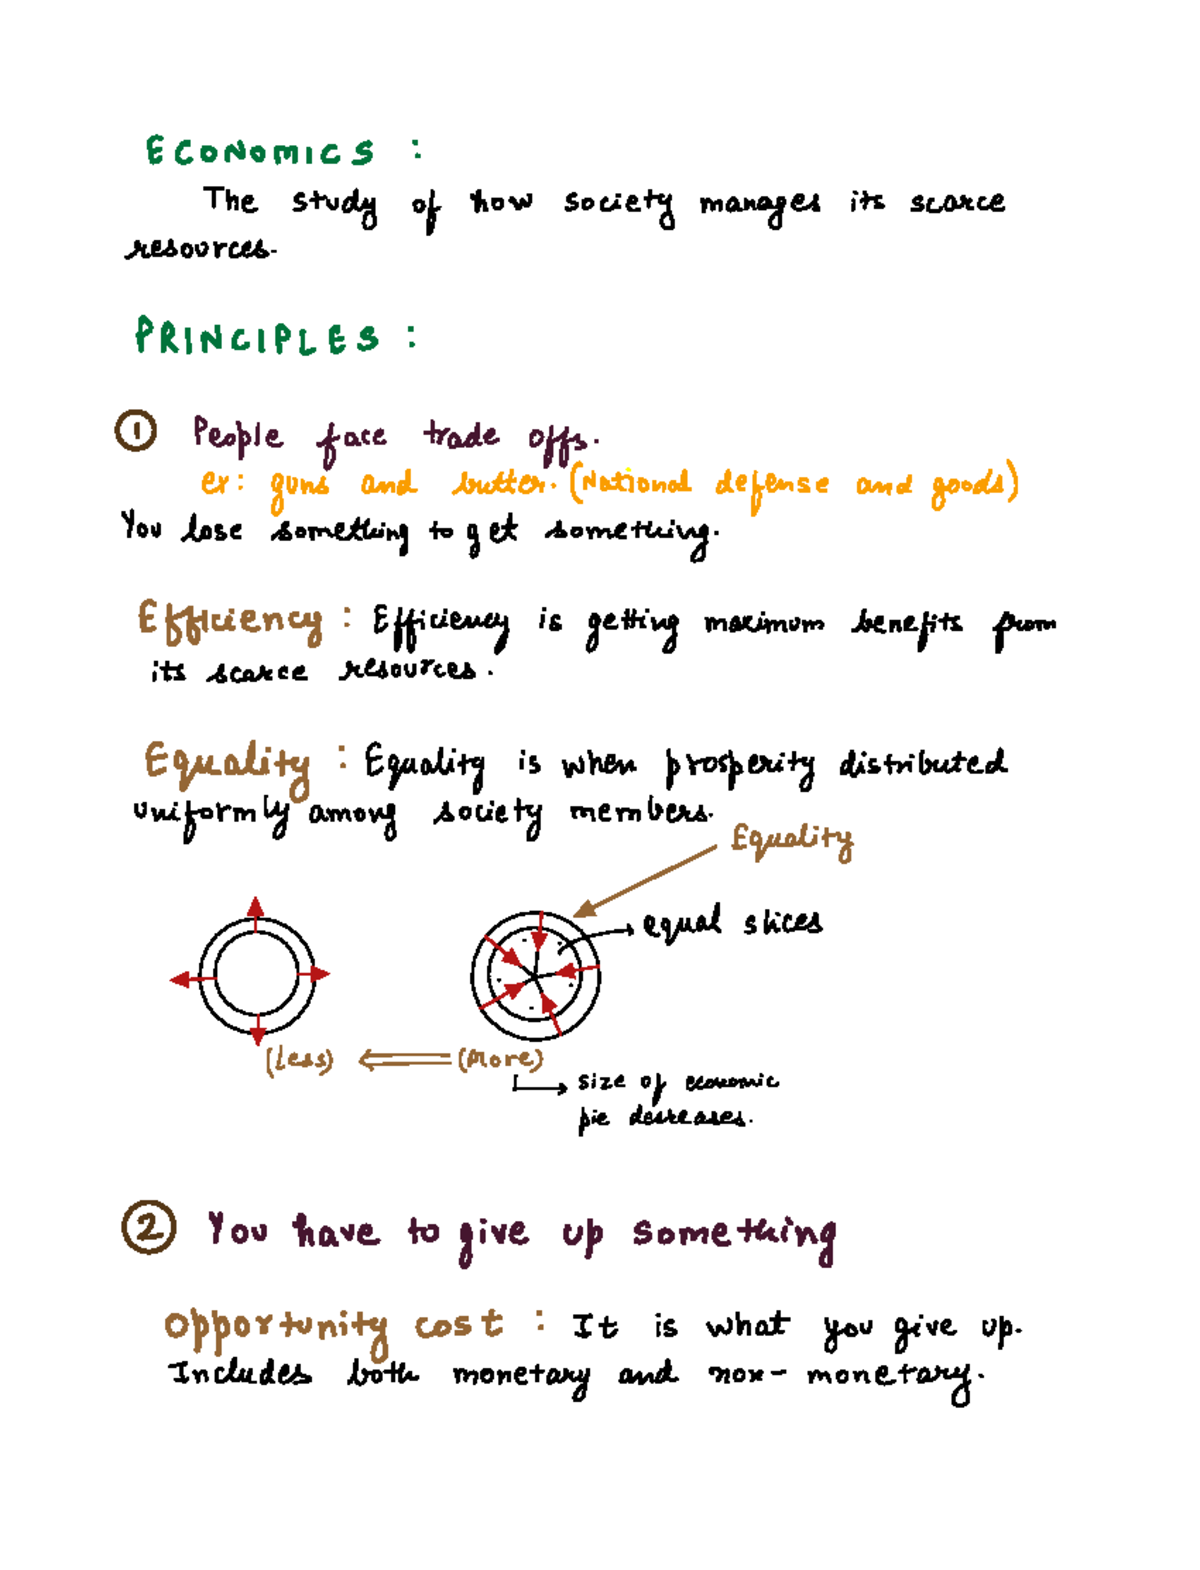 ECONOMICS :
The study of how society manages its scarce
resources.
PRINCIPLES :
① People face trade offs.
ex: guns and butter. (National defense and goods)
You lose something to get something.
Efficiency : Efficiency is getting maximum benefits from
its scarce resources.
Equality : Equality is when prosperity distributed
uniformly among society members.
Equality
equal slices
(Less) (More)
size of economic
pie decreases.
② You have to give up something
Opportunity cost : It is what you give up.
Includes both monetary and non-monetary.